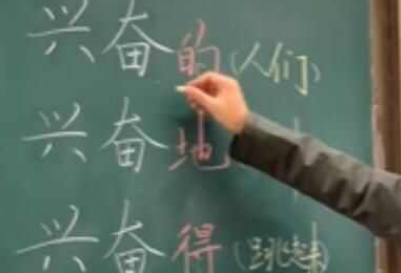 兴奋的(人们)
兴奋地
兴奋得(跳起来